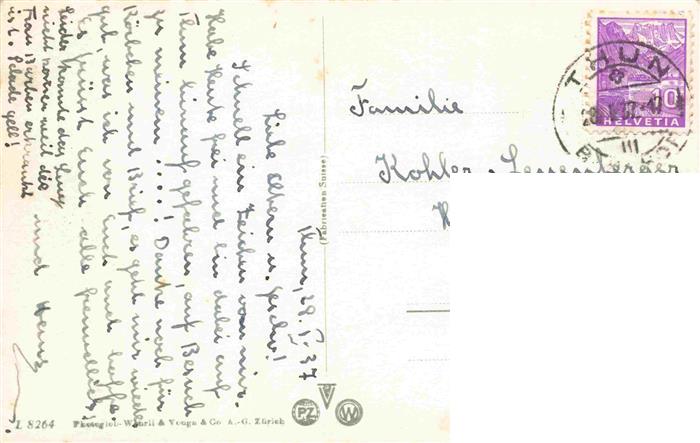 Thun, 28. V. 37
Liebe Eltern u. Geschw!
Schnell ein Zeichen von mir.
Habe heute frei und bin dabei auf
Thun hinauf gefahren, auf Besuch
zu meinem ....! Danke noch für
Kärtchen und Brief, es geht mir wieder
gut, was ich von Euch auch hoffe.
Es grüsst Euch alle freundlich
und
Leider konnte das
nicht kommen weil die
Frau erkrankt
ist. Schade gell!
Familie
Kohler-Leuenberger
THUN
III
10
HELVETIA
(Fabrication Suisse)
PZ
V
W
L 8264 Photoglob-Wehrli & Vouga & Co A.-G. Zürich